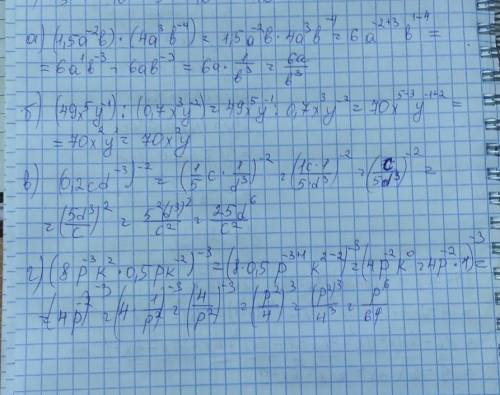 а) (1,5a⁻²b)·(4a³b⁻⁴) = 1,5a⁻²b·4a³b⁻⁴ = 6a⁻²⁺³b¹⁻⁴ =
= 6a¹b⁻³ = 6ab⁻³ = 6a·1/b³ = 6a/b³
б) (49x⁵y⁻¹):(0,7x³y⁻²) = 49x⁵y⁻¹:0,7x³y⁻² = 70x⁵⁻³y⁻¹⁺² =
= 70x²y¹ = 70x²y
в) (0,2cd⁻³)⁻² = (1/5 c·1/d³)⁻² = (1c·1/5·d³)⁻² = (c/5d³)⁻² =
= (5d³/c)² = 5²(d³)²/c² = 25d⁶/c²
г) (8p⁻³k²·0,5pk⁻²)⁻³ = (8·0,5p⁻³⁺¹k²⁻²)⁻³ = (4p⁻²k⁰ = 4p⁻²·1)⁻³ =
= (4p⁻²)⁻³ = (4·1/p²)⁻³ = (4/p²)⁻³ = (p²/4)³ = (p²)³/4³ = p⁶/64